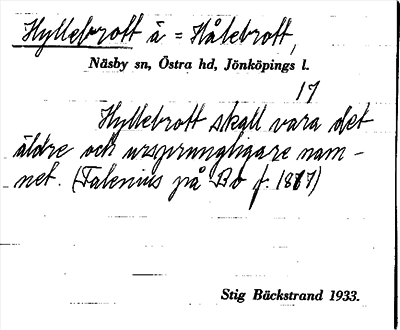 Hyllebrott å = Hålebrott,
Näsby sn, Östra hd, Jönköpings l.
17
Hyllebrott skall vara det
äldre och ursprungligare nam-
net. (Talenius på Bo f. 1817)
Stig Bäckstrand 1933.